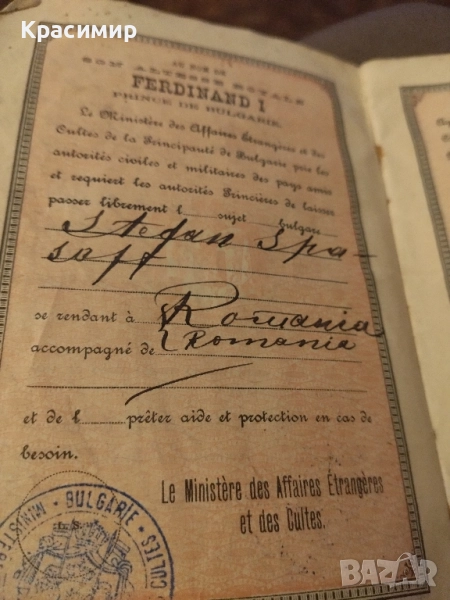 Красимир
SON ALTESSE ROYALE
FERDINAND I
PRINCE DE BULGARIE
Le Ministère des Affaires Étrangères et des
Cultes de la Principauté de Bulgarie prie les
autorités civiles et militaires des pays amis
et requiert les autorités Princières de laisser
passer librement l sujet bulgare
Stefan Spa-
soff
se rendant à Romania
accompagné de Romania
et de l prêter aide et protection en cas de
besoin.
Le Ministère des Affaires Étrangères
et des Cultes.
L. S.
BULGARIE
CULTES
bazar